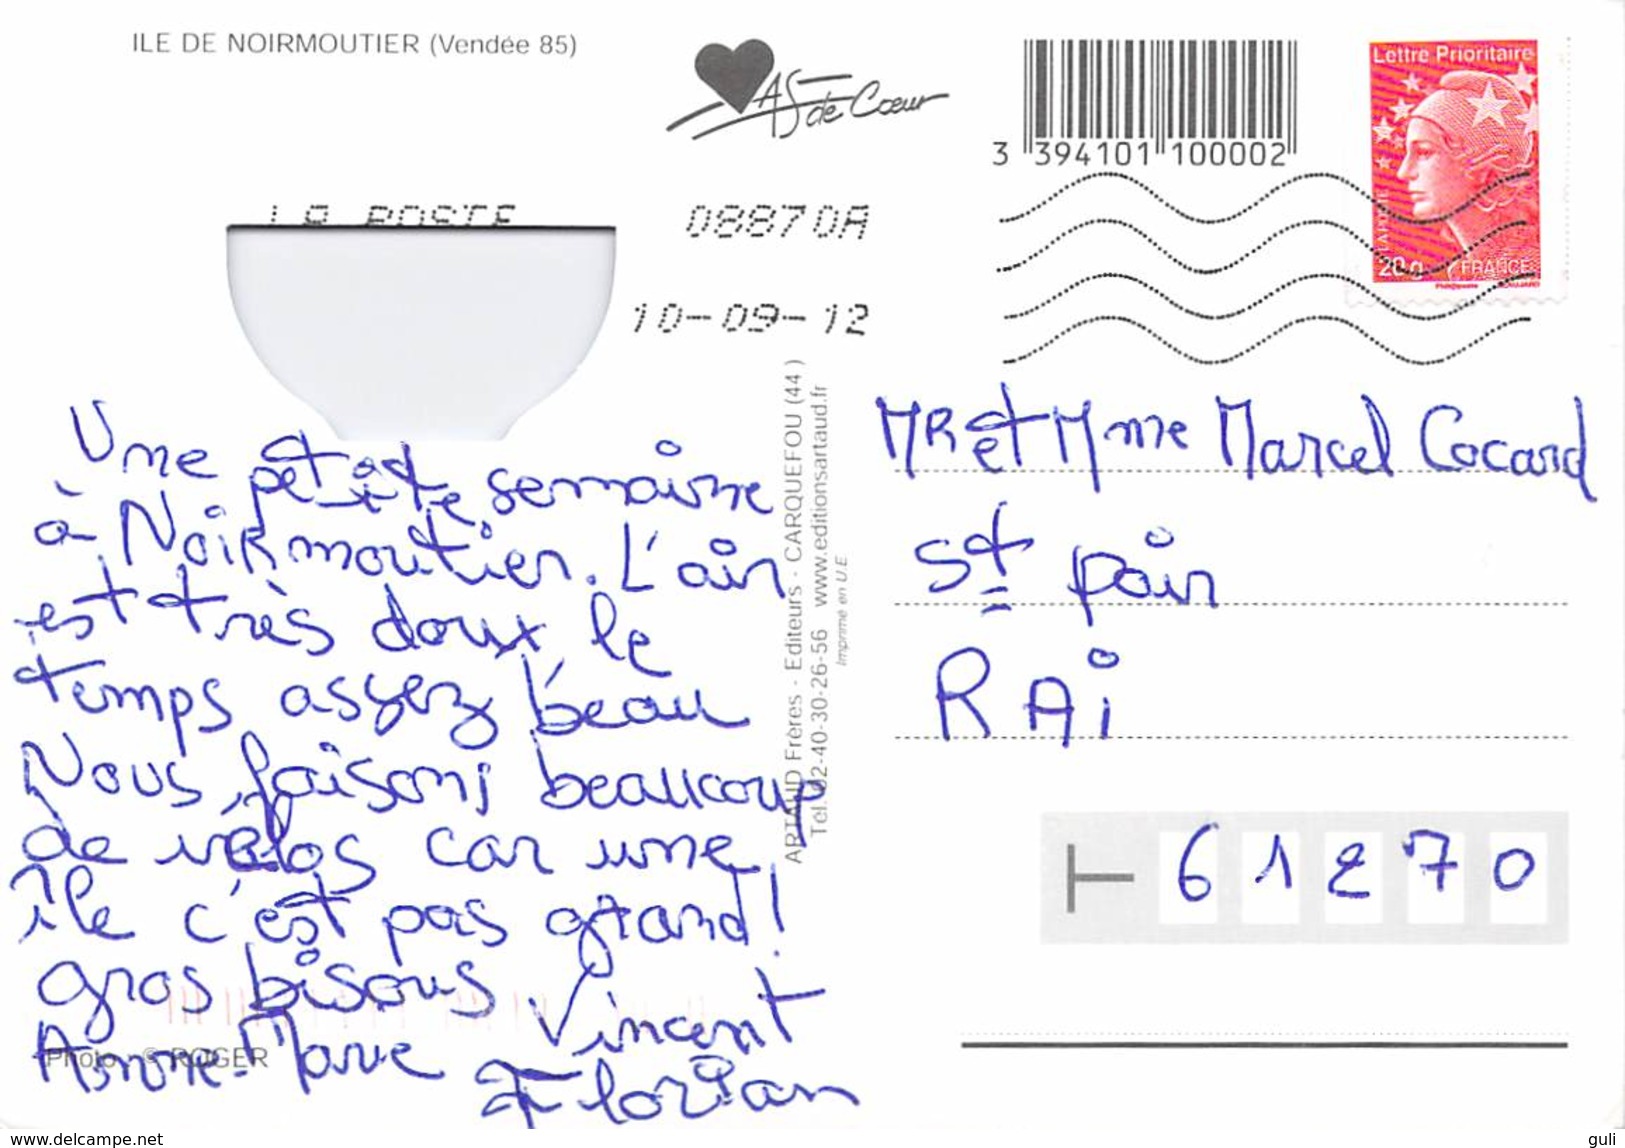 ILE DE NOIRMOUTIER (Vendée 85)
AS de Cœur
3 394101 100002
Lettre Prioritaire
LA POSTE
20 g FRANCE
LA POSTE
08870A
10-09-12
Une petite semaine
à Noirmoutier. L'air
est très doux le
temps assez beau
Nous faisons beaucoup
de vélos car une
île c'est pas grand!
gros bisous Vincent
Anne-Marie
Florian
Photo © ROGER
ARTAUD Frères - Editeurs - CARQUEFOU (44)
Tel. 02-40-30-26-56 www.editionsartaud.fr
Imprimé en U.E
MR et Mme Marcel Cocard
St pair
RAi
61270
www.delcampe.net
guli